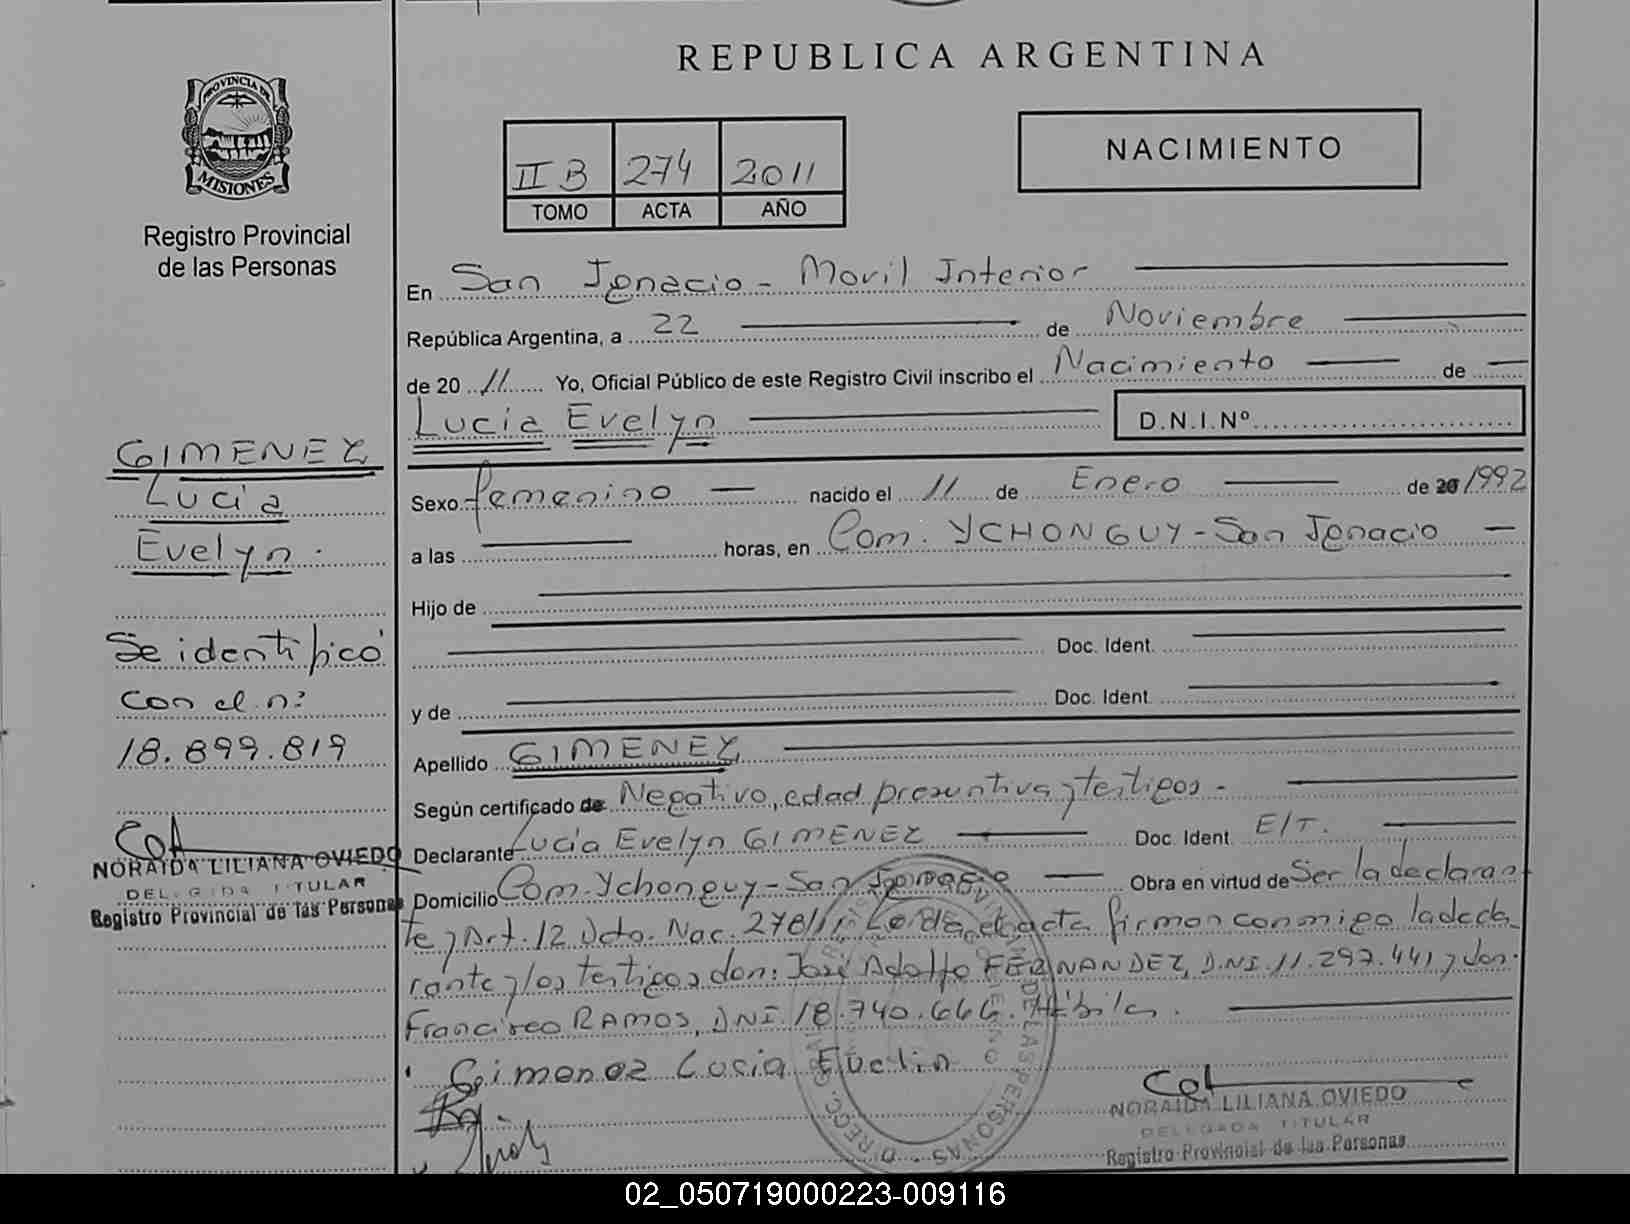 REPUBLICA ARGENTINA
PROVINCIA DE
MISIONES
Registro Provincial
de las Personas
II B 274 2011
TOMO ACTA AÑO
NACIMIENTO
En San Ignacio - Movil Interior
República Argentina, a 22 de Noviembre
de 20 11 Yo, Oficial Público de este Registro Civil inscribo el Nacimiento de
Lucia Evelyn D.N.I.Nº
GIMENEZ
Lucia
Evelyn.
Se identificó
con el nº
18.899.819
NORAIDA LILIANA OVIEDO
DELEGADA TITULAR
Registro Provincial de las Personas
Sexo femenino nacido el 11 de Enero de 20 1992
a las horas, en Com. YCHONGUY - San Ignacio
Hijo de
Doc. Ident.
y de Doc. Ident.
Apellido GIMENEZ
Según certificado de Negativo, edad presuntiva y testigos.
Declarante Lucia Evelyn GIMENEZ Doc. Ident. E/T.
Domicilio Com. Ychonguy - San Ignacio Obra en virtud de Ser la declaran
te y Art. 12 Dcto. Nac. 278/11. Leída el acta firman conmigo la decla
rante y los testigos don: José Adolfo FERNANDEZ, D.N.I. 11.297.441 y don
Francisco RAMOS, DNI. 18.740.666. Hábiles.
Gimenez Lucia Evelin
NORAIDA LILIANA OVIEDO
DELEGADA TITULAR
Registro Provincial de las Personas
02_050719000223-009116